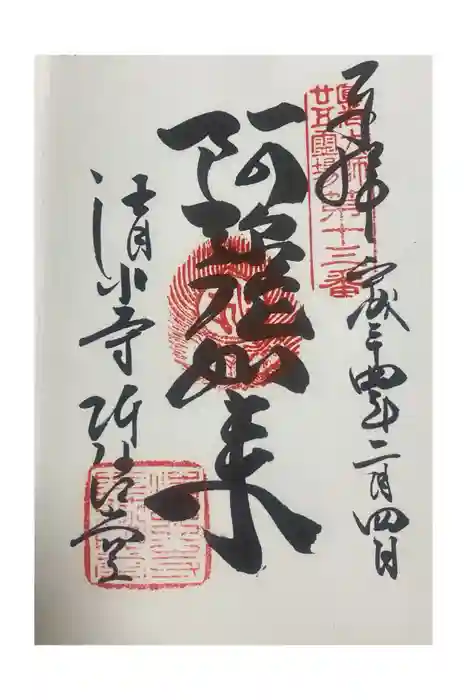 奉拝
圓光大師
廿五霊場
第十三番
平成二十四年二月四日
阿弥陀如来
清水寺 阿弥陀堂